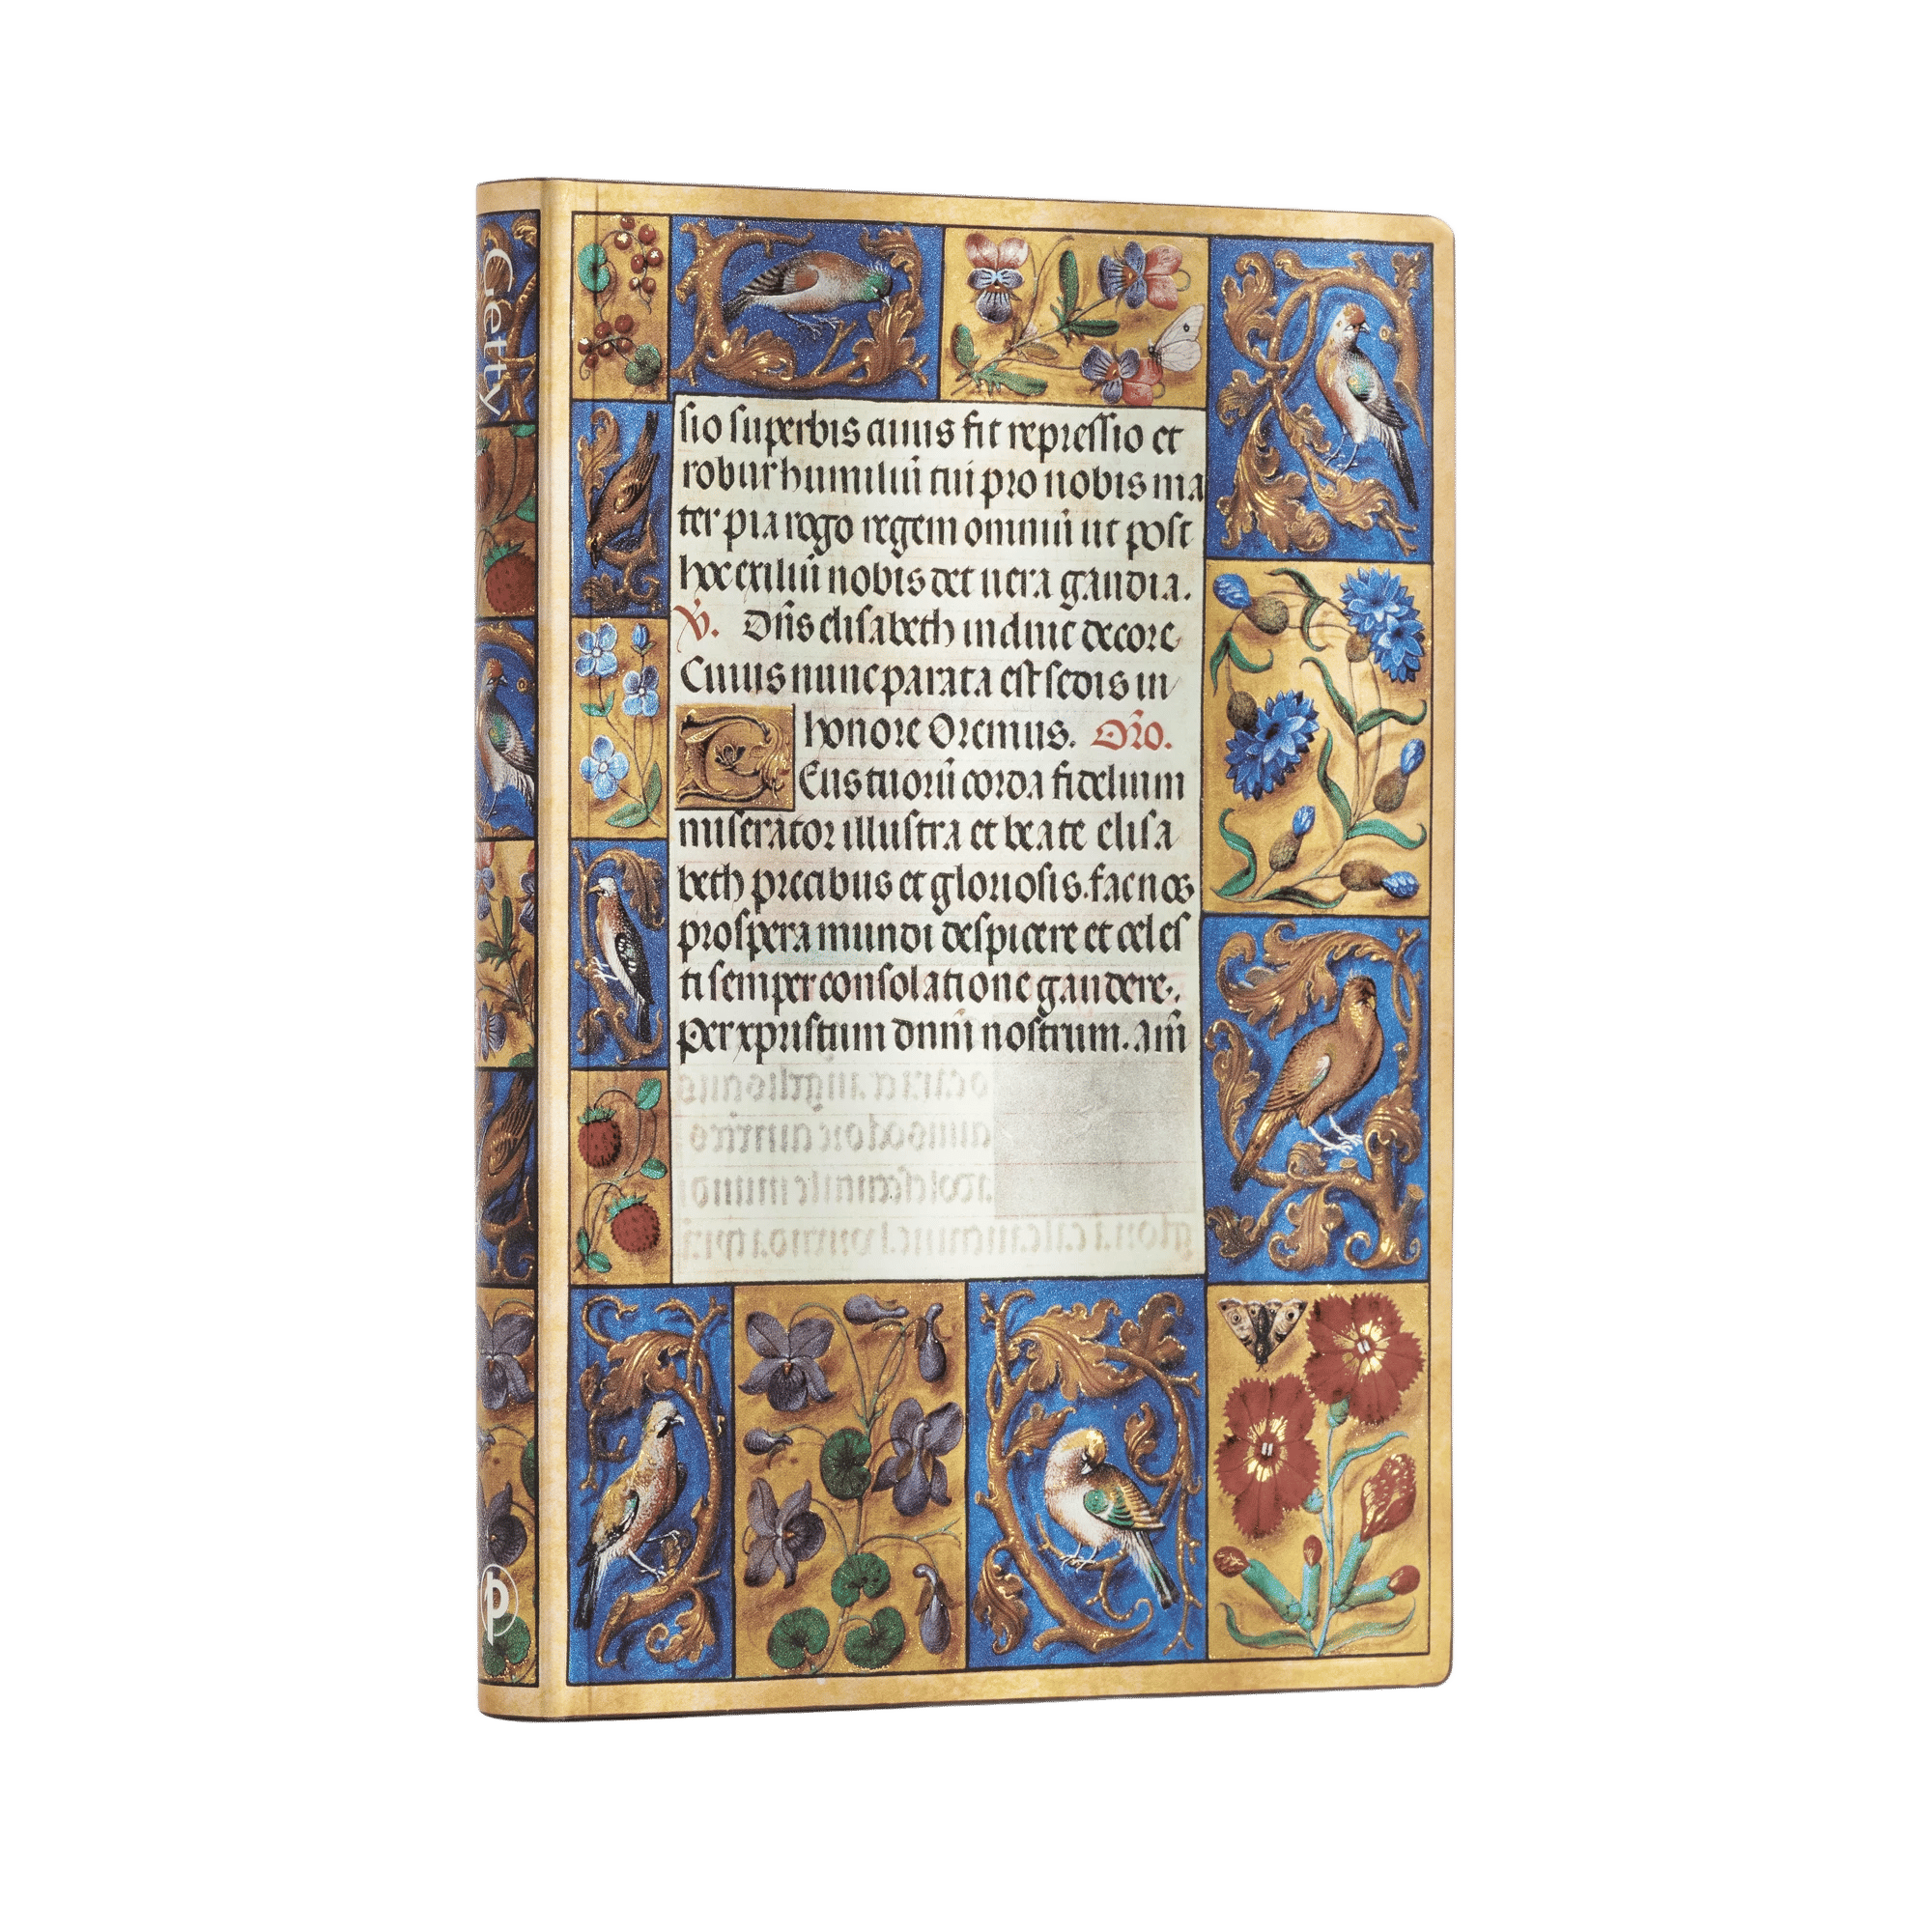 Getty
sio superbis cuius fit repressio et
robur humiliū cui pro nobis ma
ter pia rogo regem omniū ut post
hoc exiliū nobis det uera gaudia.
V. Dn̄s elisabeth induit decore
Cuius nunc parata est sedis in
honore Oremus. Or̄o.
DEus tuorū corda fidelium
miserator illustra et beate elisa
beth precibus et gloriosis. fac nos
prospera mundi despicere et celes
ti semper consolatione gaudere.
Per xpristum dnm̄ nostrum. am̄